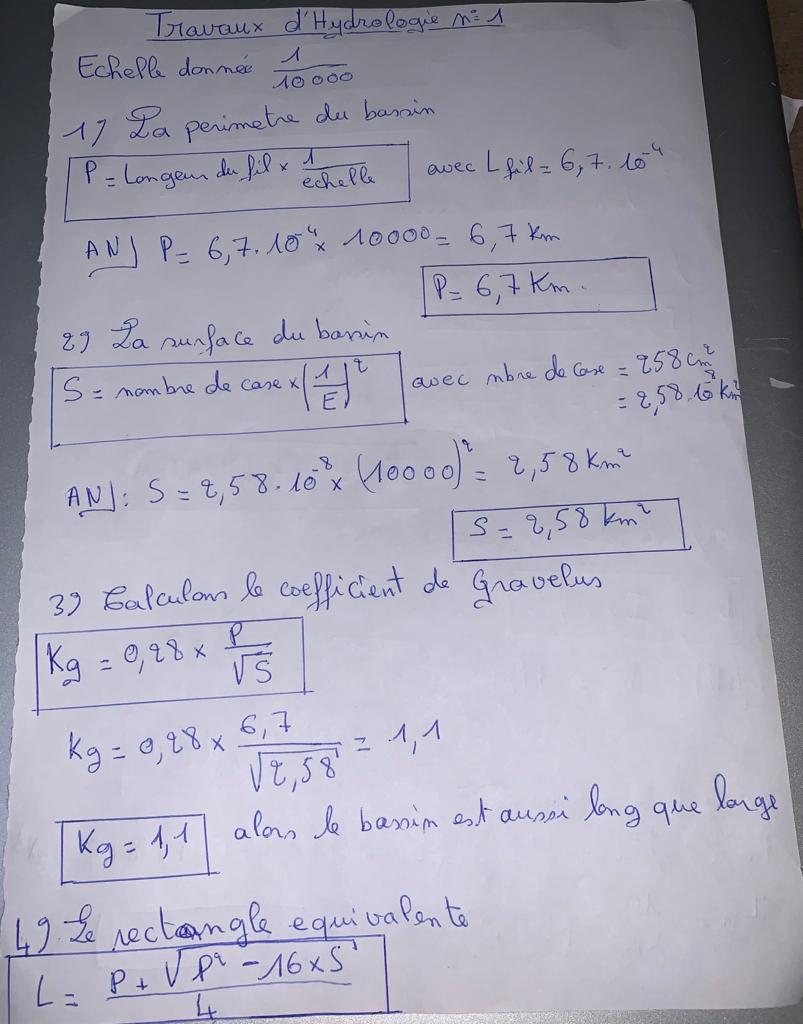 Travaux d'Hydrologie n=1
Echelle donnée 1/10000
1) La perimetre du bassin
P = Longeur du fil × 1/echelle avec L fil = 6,7. 10^-4
AN] P = 6,7. 10^-4 × 10000 = 6,7 Km
P = 6,7 Km.
2) La surface du bassin
S = nombre de case × (1/E)^2 avec nbre de case = 258 cm^2
= 2,58. 10^-8 km^2
AN]: S = 2,58. 10^-8 × (10000)^2 = 2,58 Km^2
S = 2,58 km^2
3) Calculons le coefficient de Gravelus
Kg = 0,28 × P/√S
Kg = 0,28 × 6,7/√2,58 = 1,1
Kg = 1,1 alors le bassin est aussi long que large
4) Le rectangle equivalente
L = P + √P^2 - 16 × S / 4